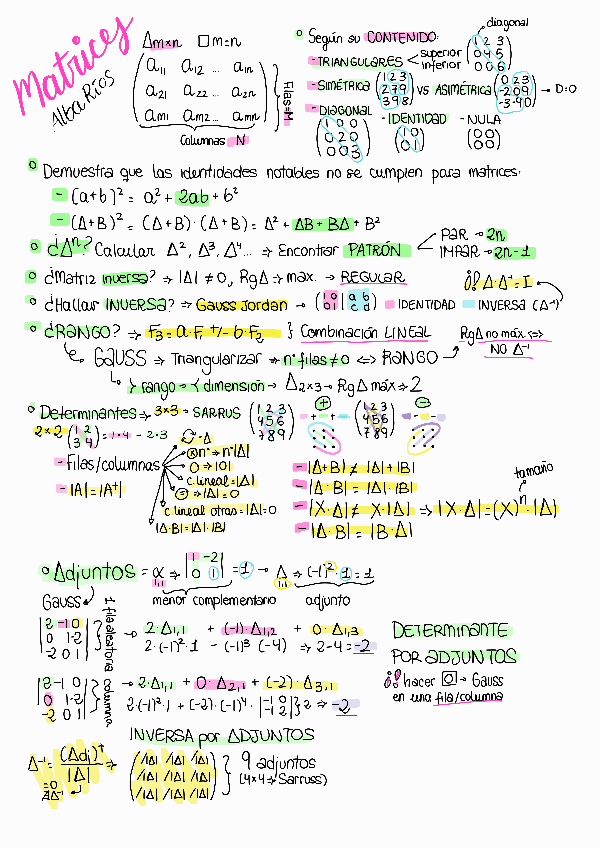 Matrices
Alba Ríos
Δm×n □m=n
a11 a12 ... a1n
a21 a22 ... a2n
am1 am2 ... amn
Filas=M
Columnas N
Según su CONTENIDO:
diagonal
- TRIANGULARES < superior inferior
1 2 3
0 4 5
0 0 6
- SIMÉTRICA (1 2 3 / 2 7 9 / 3 9 8) vs ASIMÉTRICA (0 2 3 / -2 0 9 / -3 -9 0) → D=0
- DIAGONAL - IDENTIDAD - NULA
1 0 0
0 2 0
0 0 3
1 0
0 1
0 0
0 0
Demuestra que las identidades notables no se cumplen para matrices:
- (a+b)² = a² + 2ab + b²
- (Δ+B)² = (Δ+B)·(Δ+B) = Δ² + ΔB + BΔ + B²
¿Δⁿ? Calcular Δ², Δ³, Δ⁴... → Encontrar PATRÓN < PAR → 2n IMPAR → 2n-1
¿Matriz inversa? → |Δ| ≠ 0, RgΔ → max. → REGULAR ¡¡ Δ·Δ⁻¹ = I
¿Hallar INVERSA? → Gauss Jordan → (1 0 | a b / 0 1 | c d) IDENTIDAD INVERSA (Δ⁻¹)
¿RANGO? → F3 = a·F1 +/- b·F2 } Combinación LINEAL
RgΔ no máx ⇔ NO Δ⁻¹
GAUSS → Triangularizar → nº filas ≠ 0 ⇔ RANGO
> rango → < dimensión → Δ2×3 → RgΔ máx → 2
Determinantes → 3×3 → SARRUS (1 2 3 / 4 5 6 / 7 8 9) ⊕ + + - (1 2 3 / 4 5 6 / 7 8 9) ⊖ - - -
2×2 (1 2 / 3 4) = 1·4 - 2·3
- Filas/columnas
→ -Δ
ⓧ nº → nº|Δ|
0 → |0|
c. lineal = |Δ|
⊜ → |Δ| = 0
c. lineal otras = |Δ| = 0
|Δ·B| = |Δ|·|B|
- |A| = |Aᵗ|
- |Δ+B| ≠ |Δ| + |B|
- |Δ·B| = |Δ|·|B|
tamaño
- |X·Δ| ≠ X·|Δ| → |X·Δ| = (X)ⁿ·|Δ|
- |Δ·B| = |B·Δ|
Adjuntos = α1,1 → |1 -2 / 0 1| = 1 → Δ1,1 → (-1)²·1 = 1
menor complementario adjunto
Gauss
1 fila aleatoria
|2 -1 0 / 0 1 -2 / -2 0 1| → 2·Δ1,1 + (-1)·Δ1,2 + 0·Δ1,3
2·(-1)²·1 - (-1)³ (-4) → 2-4 = -2
DETERMINANTE
POR ADJUNTOS
¡¡ hacer 0 → Gauss
en una fila/columna
columna
|2 -1 0 / 0 1 -2 / -2 0 1| → 2·Δ1,1 + 0·Δ2,1 + (-2)·Δ3,1
2·(-1)²·1 + (-2)·(-1)⁴·|-1 0 / 1 -2| } 2 → -2
INVERSA por ADJUNTOS
Δ⁻¹ = (Adj)ᵗ / |Δ| →
=0
∄Δ⁻¹
/|Δ| /|Δ| /|Δ|
/|Δ| /|Δ| /|Δ|
/|Δ| /|Δ| /|Δ|
9 adjuntos
(4×4 → Sarruss)